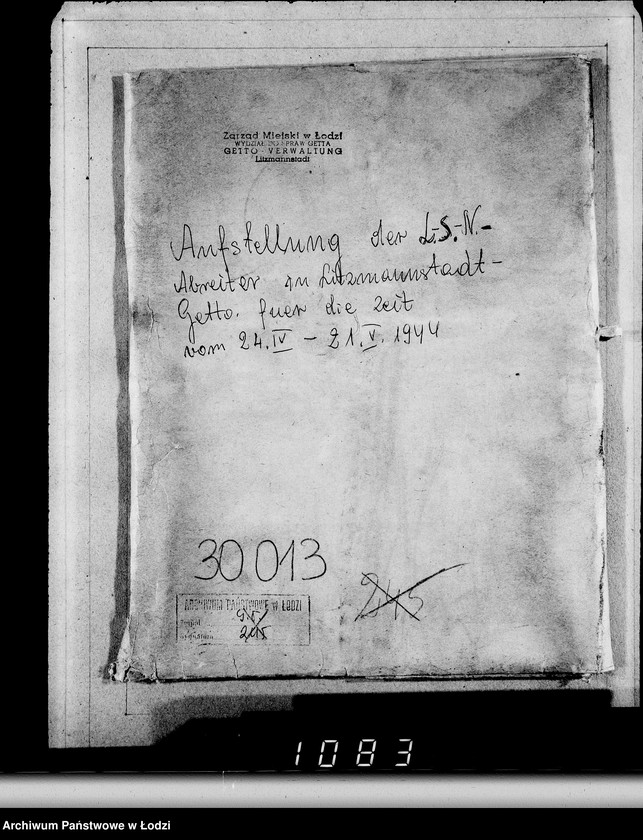 Zarząd Miejski w Łodzi
WYDZIAŁ DO SPRAW GETTA
GETTO - VERWALTUNG
Litzmannstadt
Aufstellung der L.S.-N.-
Abreiter in Litzmannstadt-
Getto. fuer die Zeit
vom 24.IV - 21.V. 1944
30013
245
ARCHIWUM PAŃSTWOWE w ŁODZI
Zespół
Sygnatura
1083
Archiwum Państwowe w Łodzi